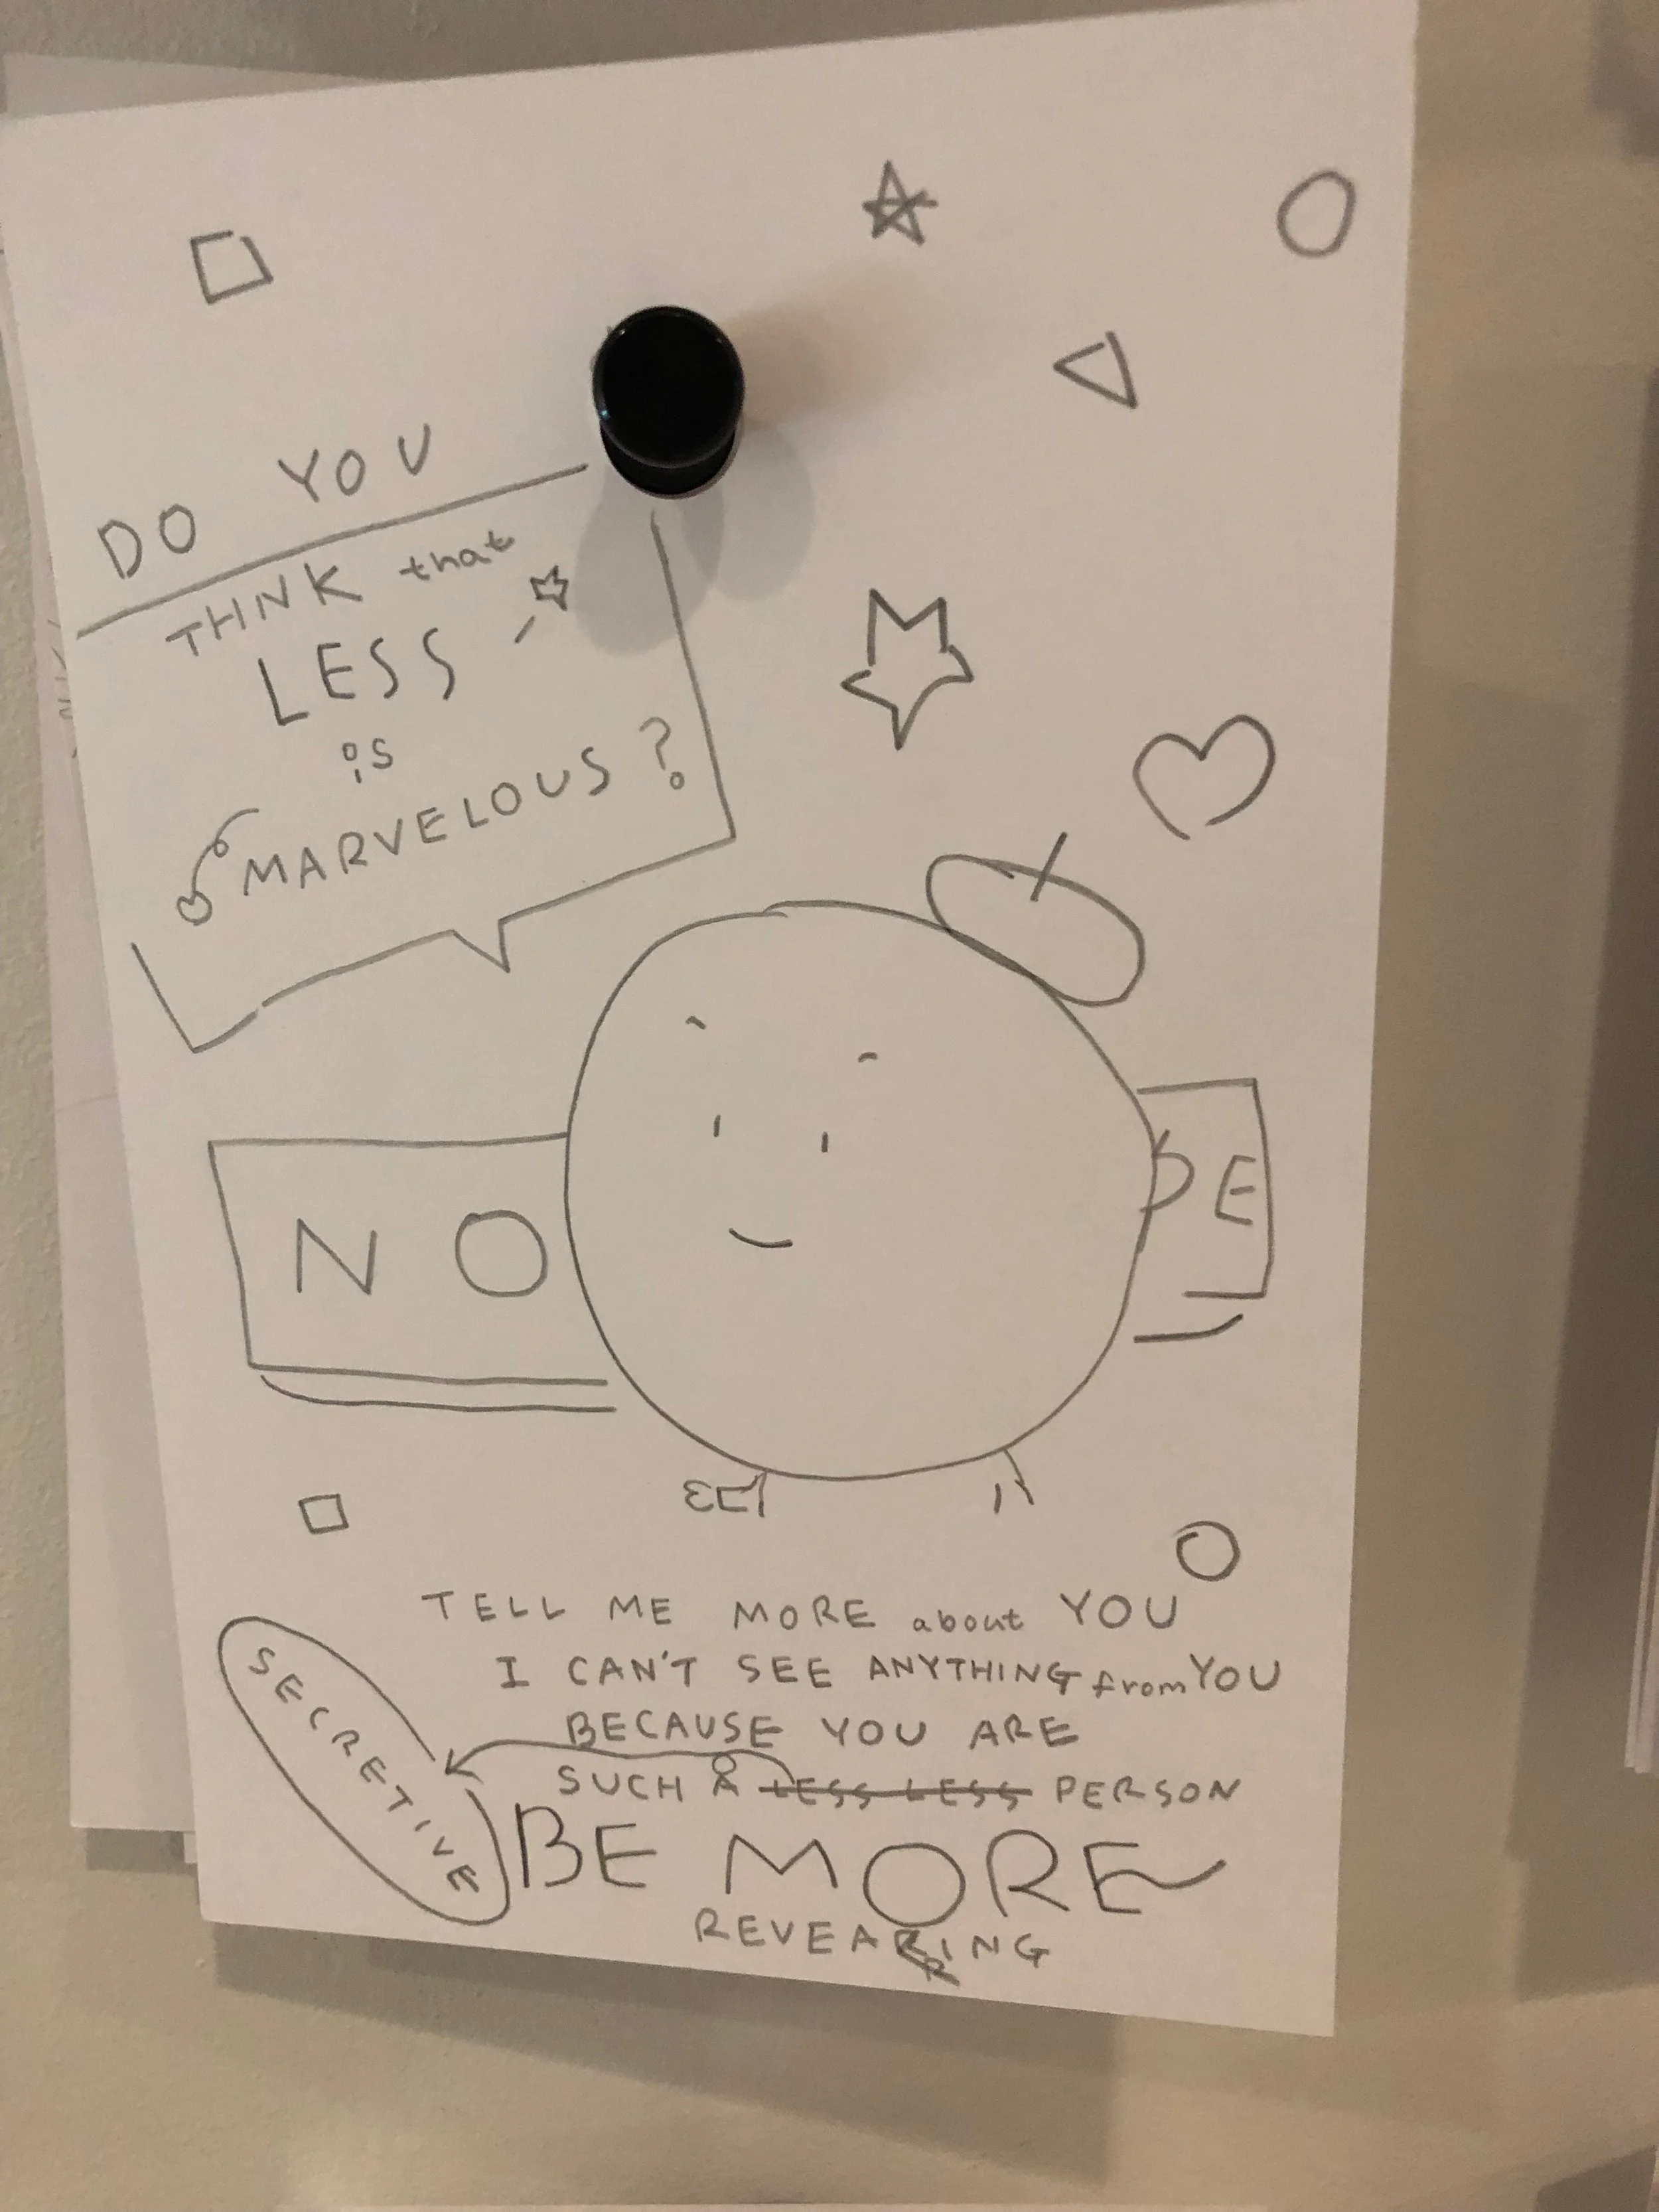 DO YOU
THINK that
LESS
is
MARVELOUS?
NO PE
TELL ME MORE about YOU
I CAN'T SEE ANYTHING from YOU
BECAUSE YOU ARE
SUCH A LESS LESS PERSON
SECRETIVE
BE MORE
REVEARING